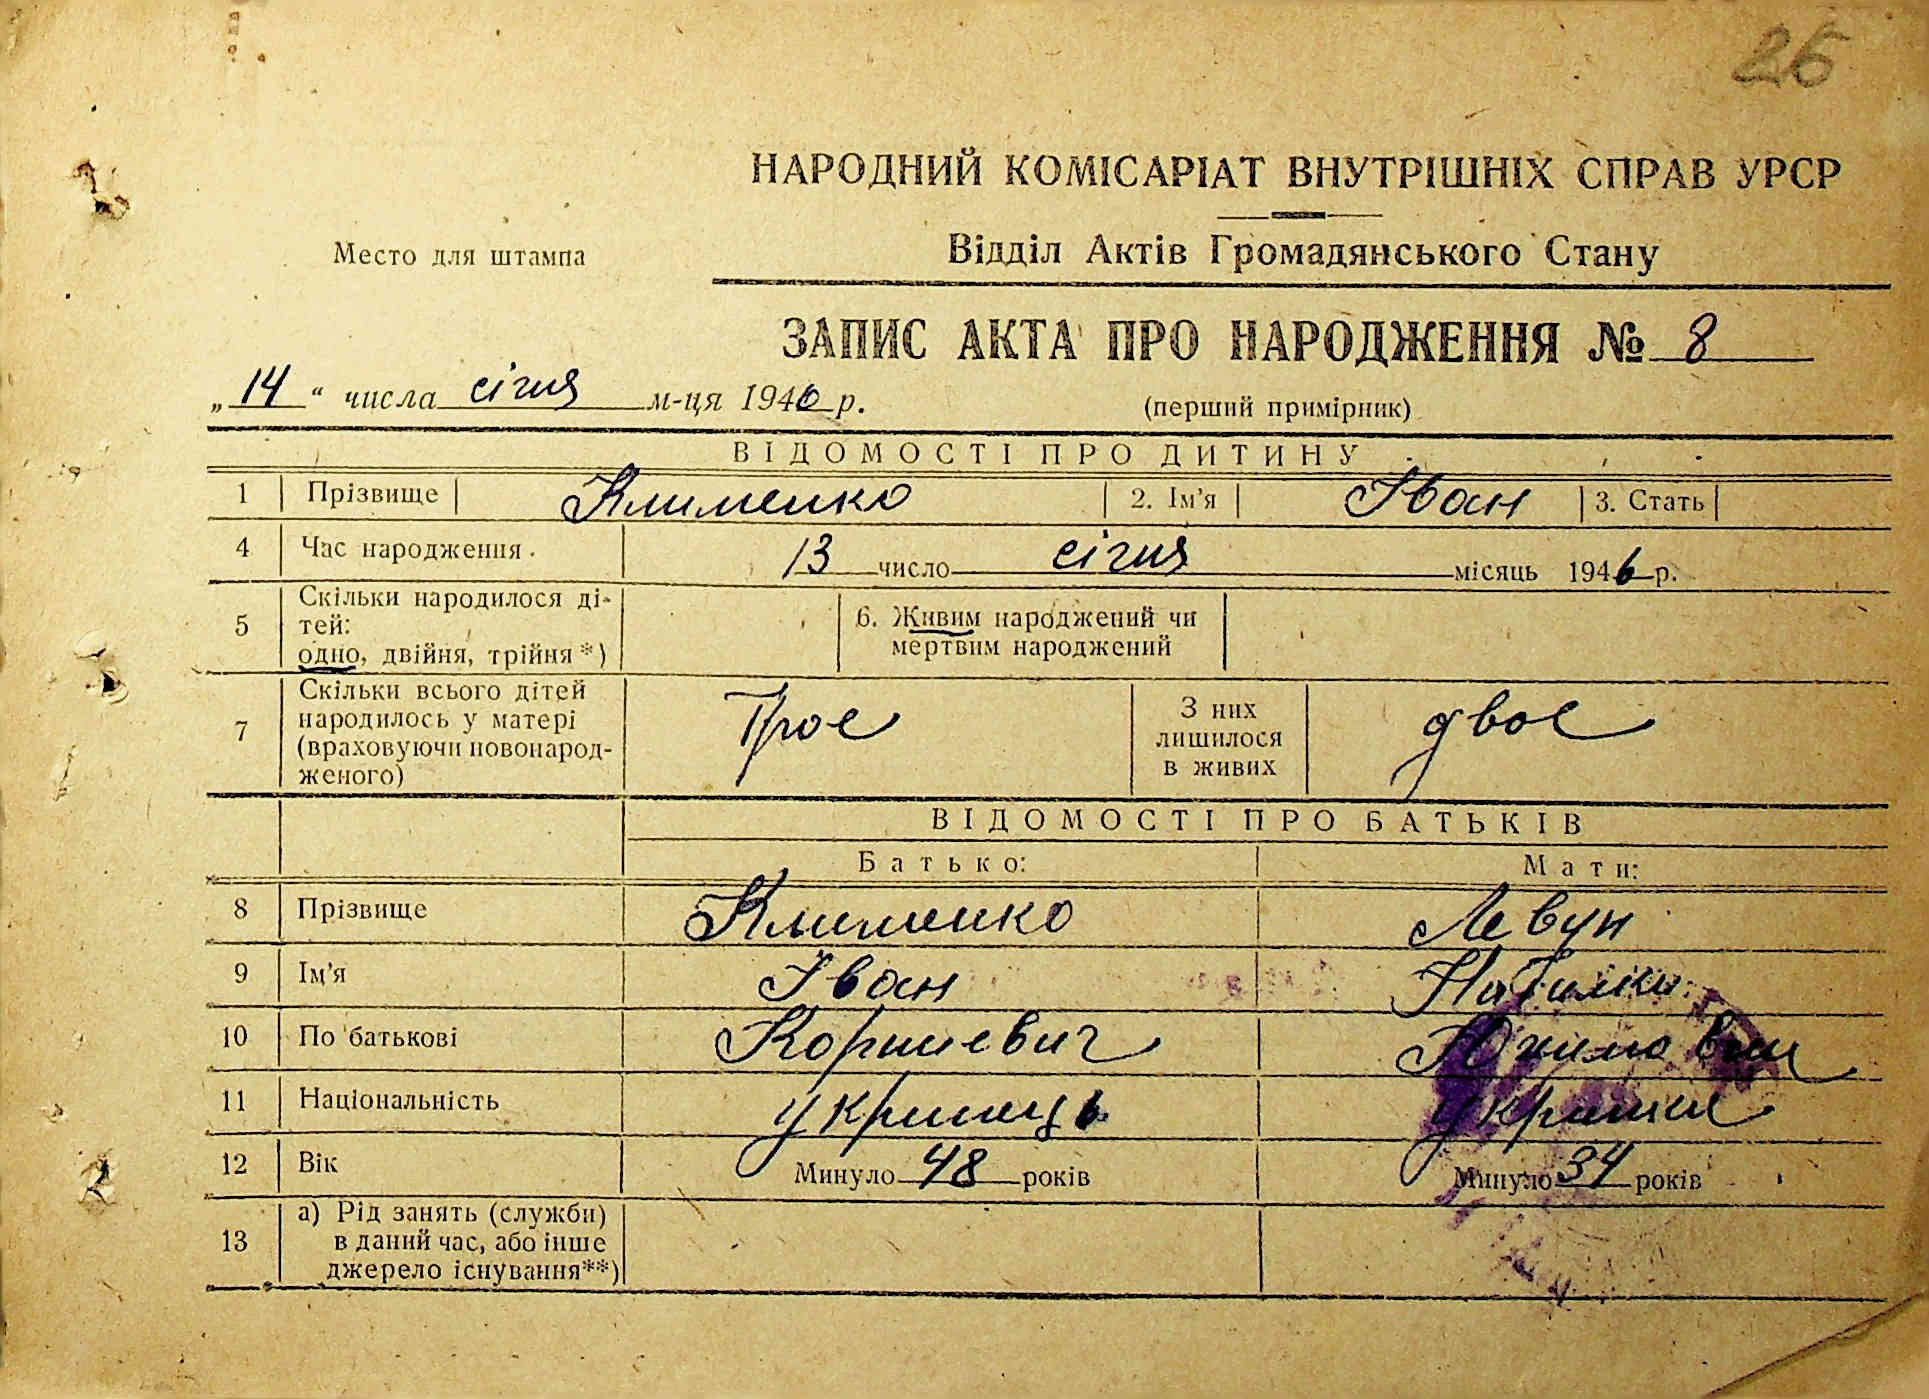 26
НАРОДНИЙ КОМІСАРІАТ ВНУТРІШНІХ СПРАВ УРСР
Место для штампа
Відділ Актів Громадянського Стану
ЗАПИС АКТА ПРО НАРОДЖЕННЯ № 8
„14“ числа січня м-ця 1946 р.
(перший примірник)
ВІДОМОСТІ ПРО ДИТИНУ
1 Прізвище Клименко 2. Ім'я Іван 3. Стать
4 Час народження. 13 число січня місяць 1946 р.
5 Скільки народилося ді-
тей:
одно, двійня, трійня*)
6. Живим народжений чи
мертвим народжений
7 Скільки всього дітей
народилось у матері
(враховуючи новонарод-
женого)
Трое
З них
лишилося
в живих
двое
ВІДОМОСТІ ПРО БАТЬКІВ
Батько: Мати:
8 Прізвище Клименко Левун
9 Ім'я Іван
10 По батькові Корниевич
11 Національність українець українка
12 Вік Минуло 48 років Минуло 34 років
13 а) Рід занять (служби)
в даний час, або інше
джерело існування**)